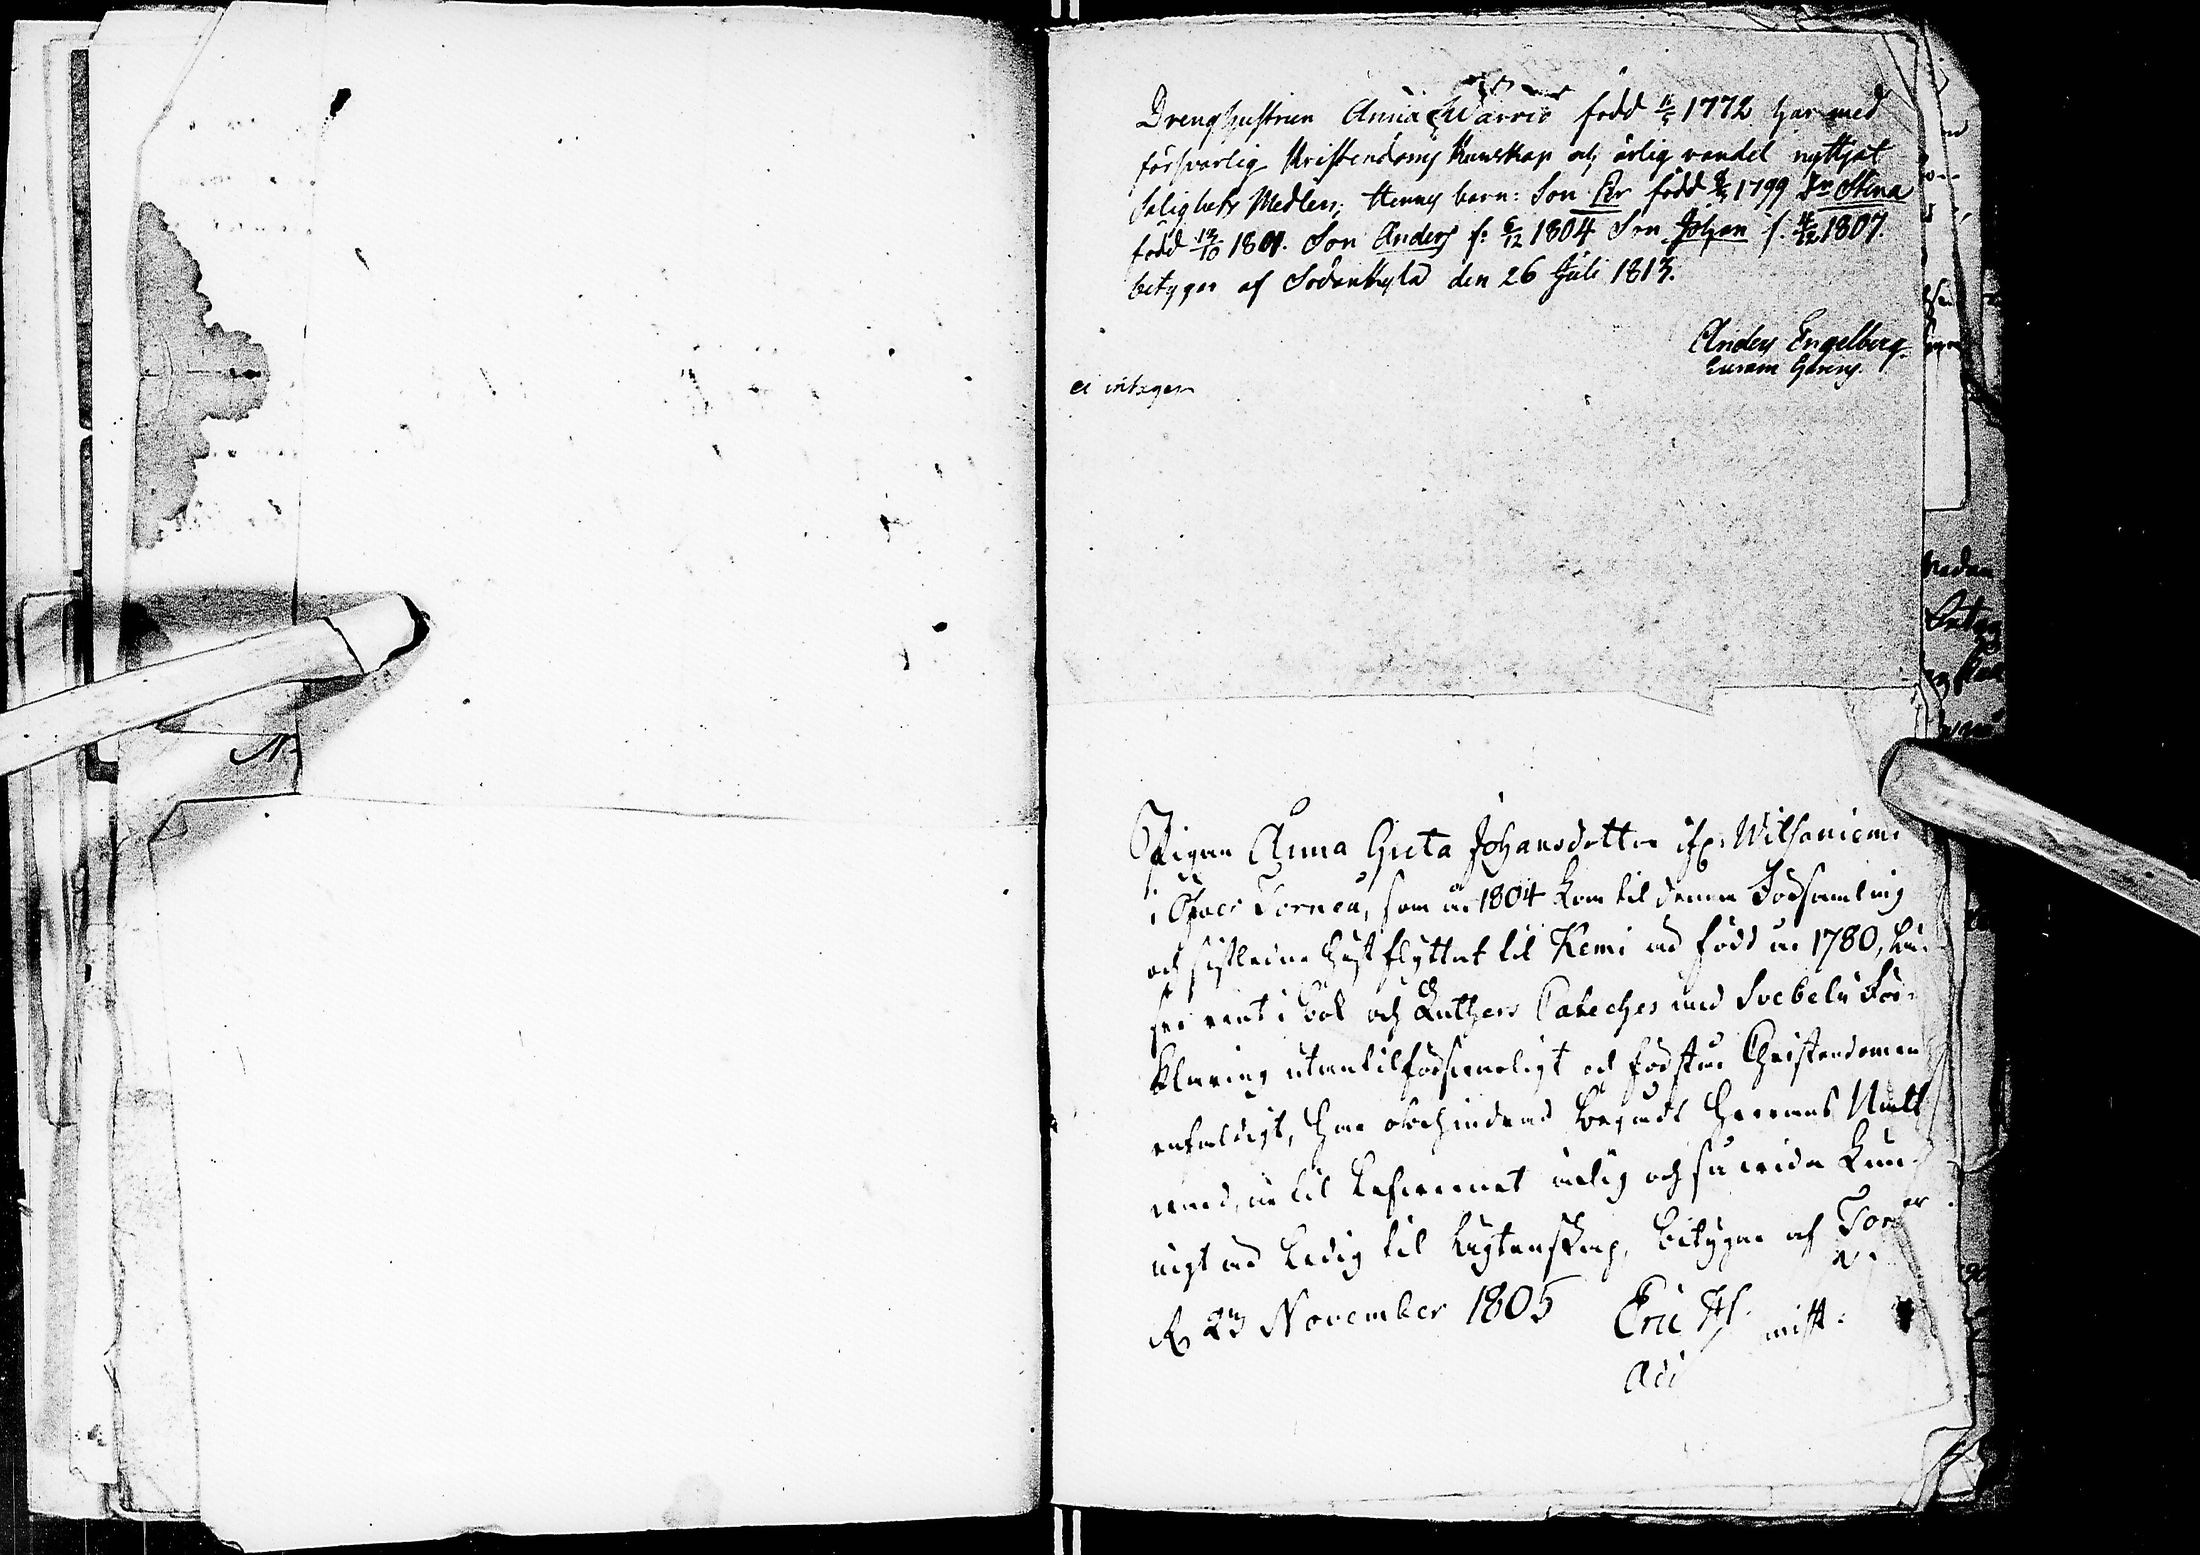 Drenghustrun Anna Warrio född 11/5 1772 har med
försvarlig Kristendoms Kunskap och ärlig vandel nyttjat
Salighets Medlen; Hennes barn: Son Per född 1799 Dr Stina
född 12/10 1801. Son Anders f: 6/12 1804 Son Johan f. 4/12 1807.
betygar af Sodankylä den 26 Juli 1813.
Anders Engelberg.
Pigan Anna Greta Johansdotter ifr: Witsaniemi
i Öfver Torneå, som år 1804 kom til denna Församling
och sistledne Höst flyttat til Kemi är född år 1780, Lä-
ser rent i bok och Luthers Cateches med Svebelii För-
klaring utantil försvarligt och förstår Christendomen
enfaldigt, har ohindrad begådt Herrans Natt
vard, är til Lefvernet ärlig och så vida kun-
nigt är Ledig til Ägtenskap, betygar af Tor
23 November 1805 Eric